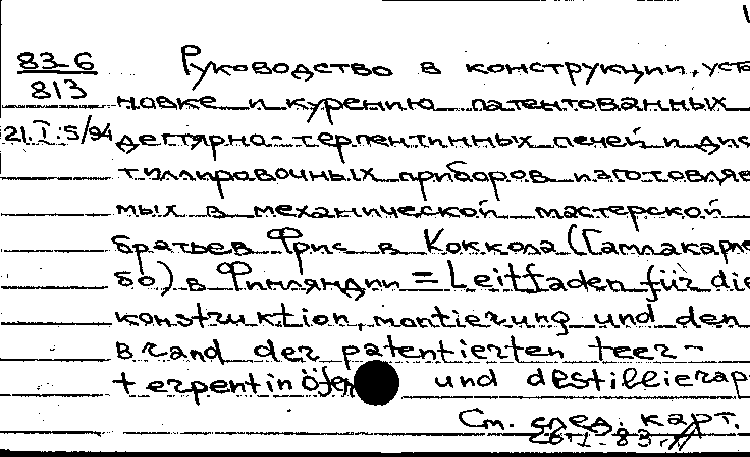 83-6
813
21.I.5/94
Руководство в конструкции, уста
новке и курению патентованных
дегтярно-терпентинных печей и дис
тиллировочных приборов изготовляе
мых в механической мастерской
братьев Фрис в Коккола (Гамлакарле
бо) в Финляндии = Leitfaden für die
konstruktion, montierung und den
Brand der patentierten teer-
terpentinöfen und destillierap
См. след. карт.
26.I.83.